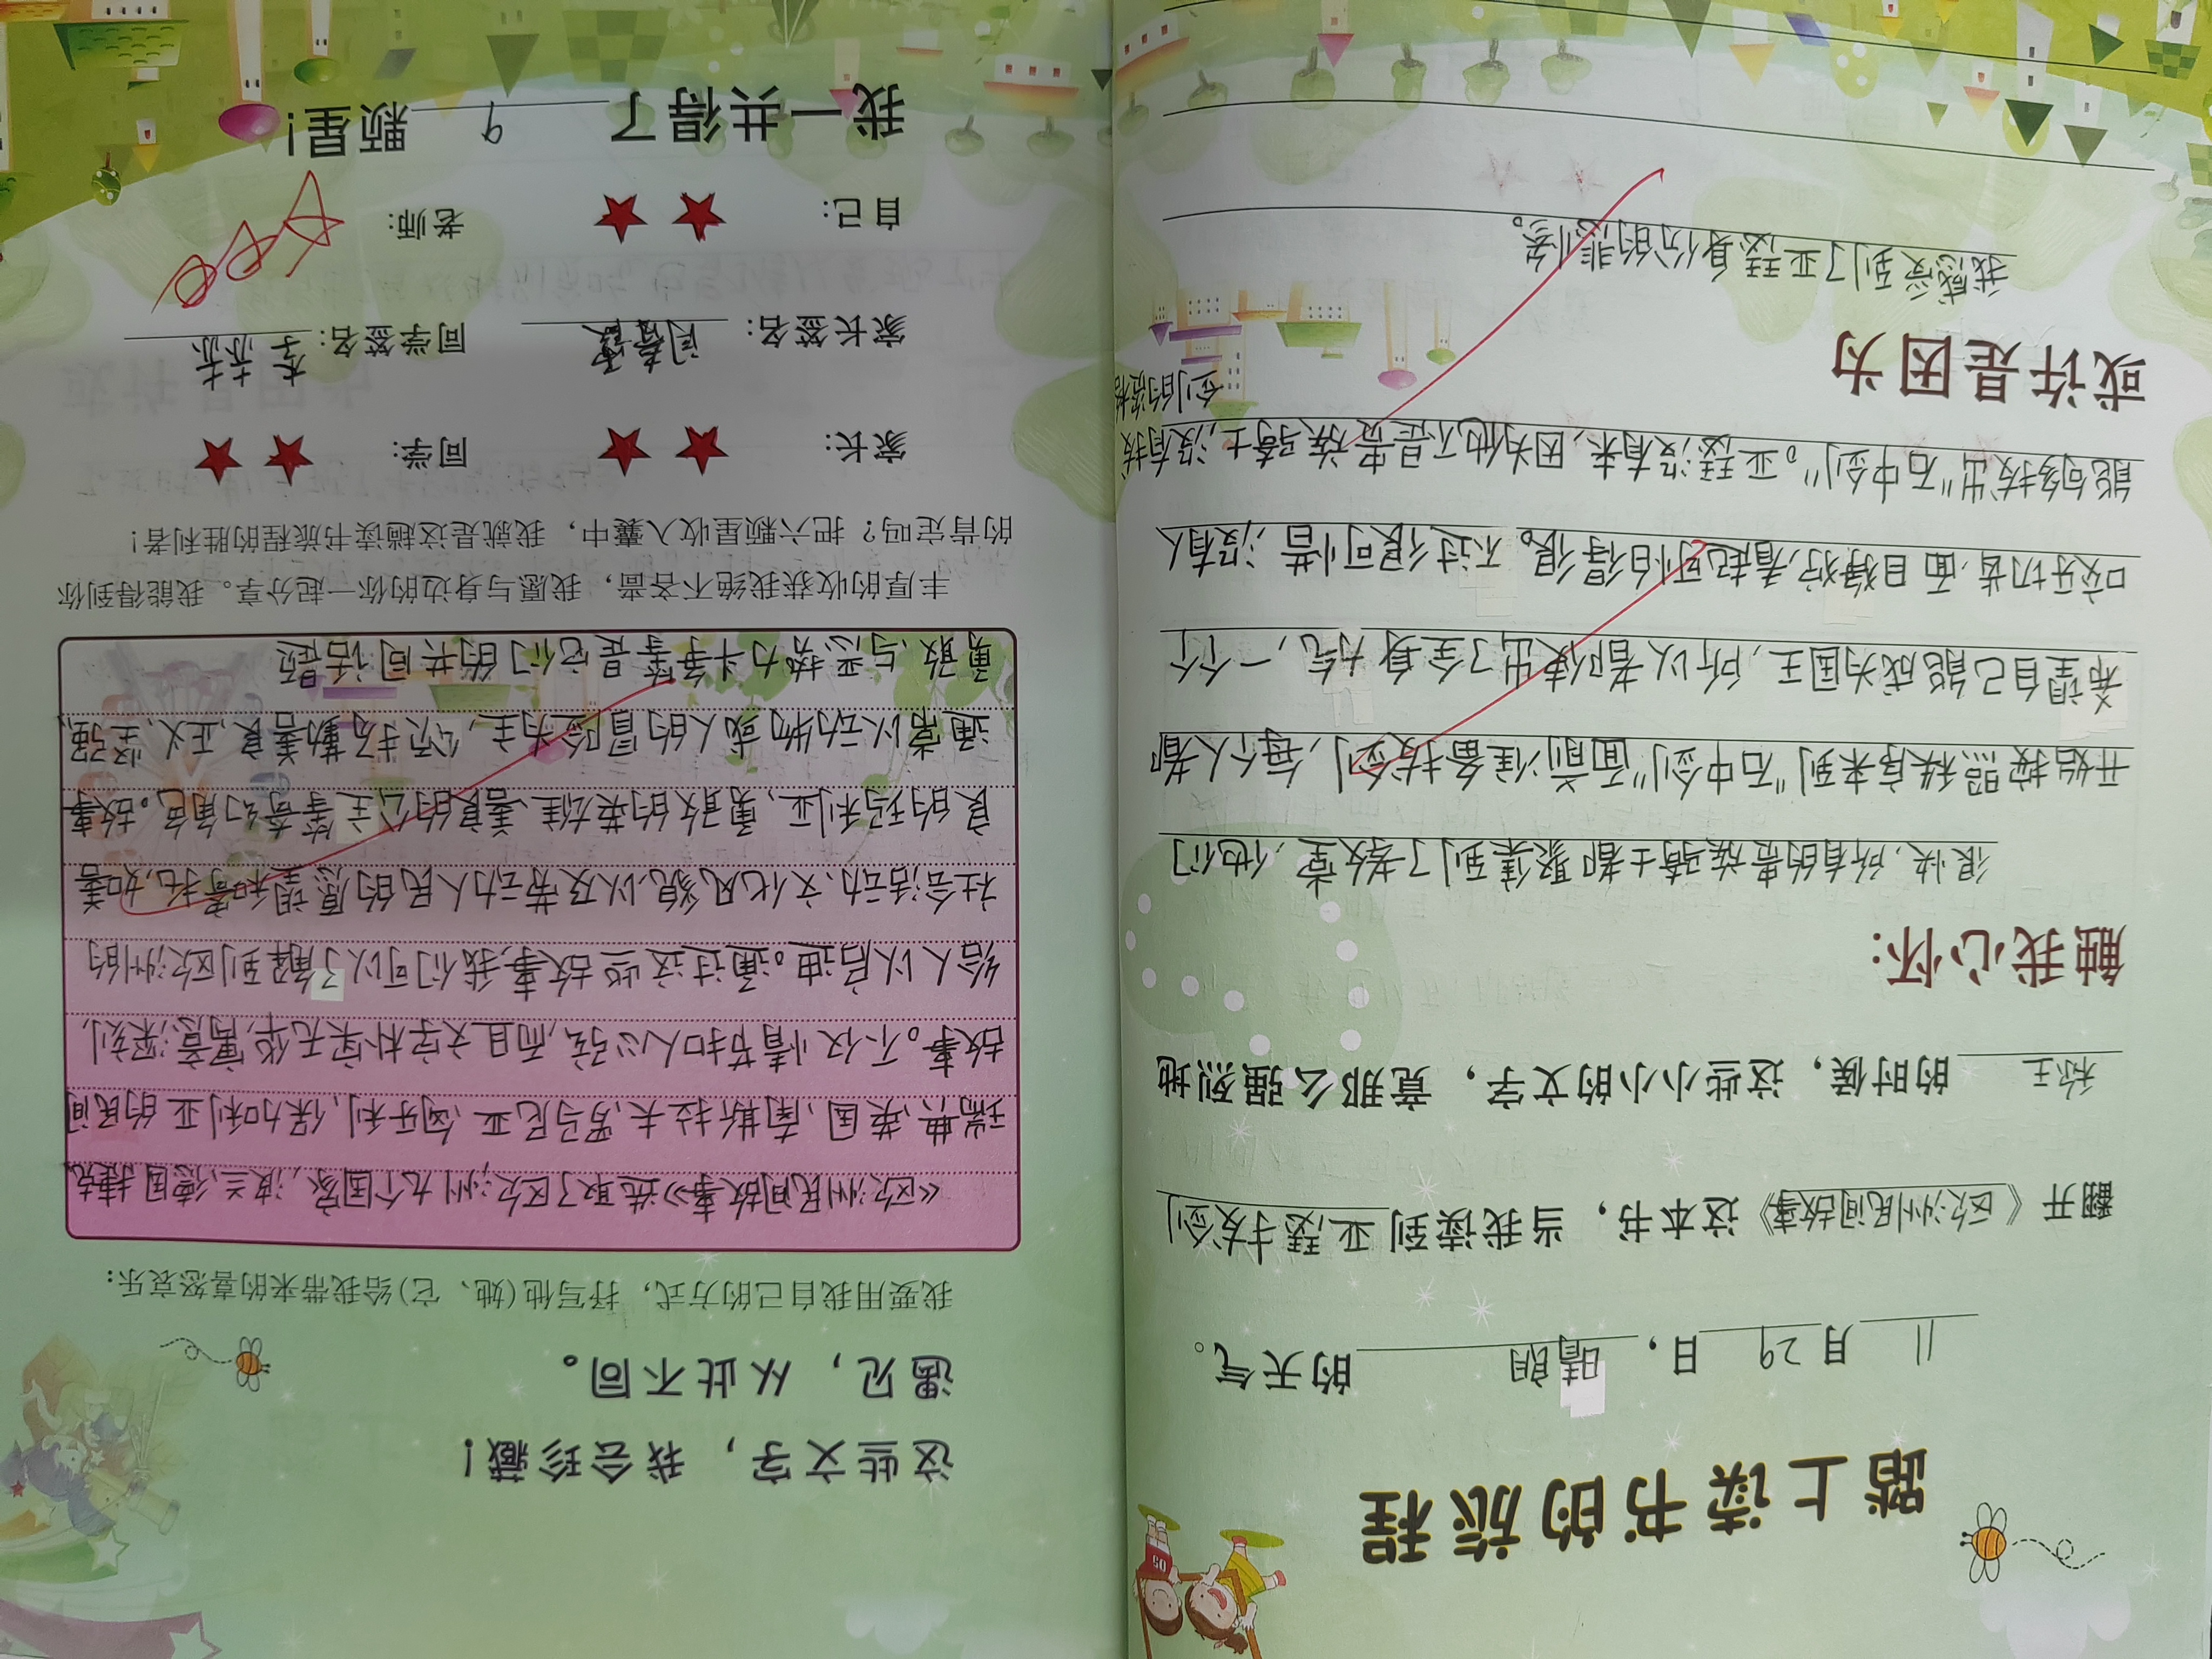 踏上读书的旅程
11月29日，晴朗的天气。
翻开《欧洲民间故事》这本书，当我读到亚瑟拔剑
称王的时候，这些小小的文字，竟那么强烈地
触我心怀：
很快，所有的贵族骑士都聚集到了教堂，他们
开始按照秩序来到"石中剑"面前准备拔剑，每个人都
希望自己能成为国王，所以都使出了全身力气，一个个
咬牙切齿，面目狰狞，看起来可怕得很。不过很可惜，没有人
能够拔出"石中剑"。亚瑟没有来，因为他不是贵族骑士，没有拔
剑的资格
或许是因为
我感受到了亚瑟身份的悲剧。
这些文字，我会珍藏！
遇见，从此不同。
我要用我自己的方式，抒写他(她、它)给我带来的喜怒哀乐：
《欧洲民间故事》选取了欧洲九个国家，波兰、德国、捷克、
瑞典、英国、南斯拉夫、罗马尼亚、匈牙利、保加利亚的民间
故事。不仅情节扣人心弦，而且文字朴实无华，寓意深刻，
给人以启迪。通过这些故事，我们可以了解到欧洲的
社会活动、文化风貌，以及劳动人民的愿望和寄托，如善
良的玛利亚，勇敢的英雄、善良的公主等奇幻角色。故事
通常以动物或人的冒险为主，颂扬勤善良、正义、坚强、
勇敢、与恶势力斗争等是它们的共同话题
丰厚的收获我绝不吝啬，我愿与身边的你一起分享。我能得到你
的肯定吗？把六颗星收入囊中，我就是这趟读书旅程的胜利者！
家长：
同学：
家长签名：
同学签名：李添
自己：
老师：
我一共得了9颗星！